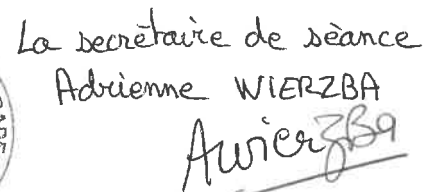 La secrétaire de séance
Adrienne WIERZBA
AwierZBa